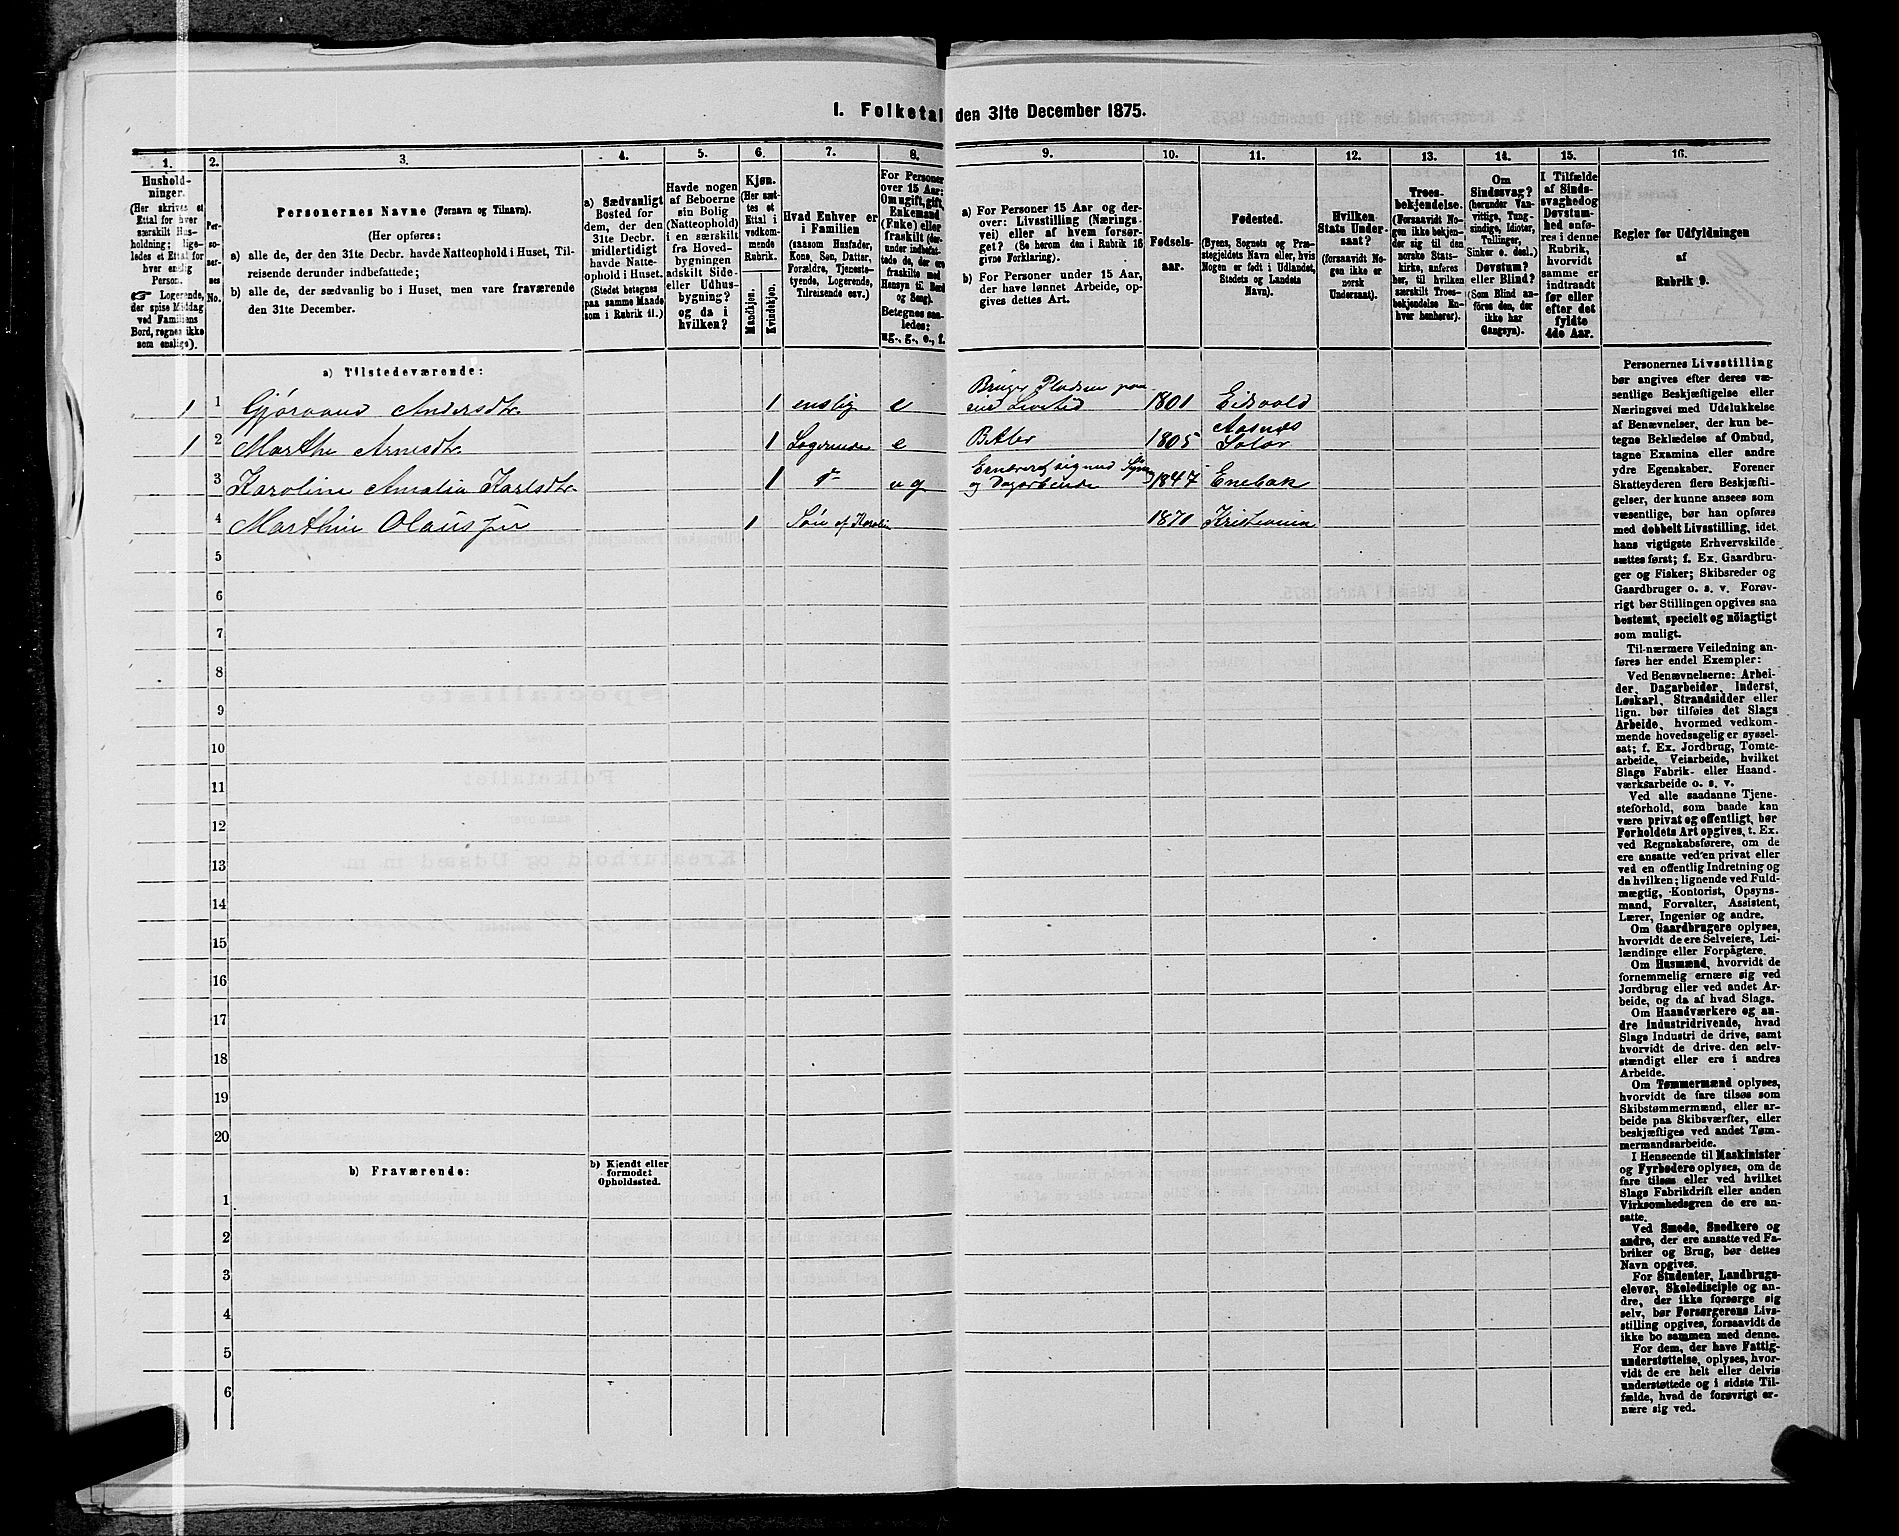 I. Folketal den 31te December 1875.
1. 2. 3. 4. 5. 6. 7. 8. 9. 10. 11. 12. 13. 14. 15. 16.
Husholdninger.
(Her skrives et
Ettal for hver
særskilt Husholdning; ligeledes et Ettal for
hver enslig
Person.
☞ Logerende,
der spise Middag
ved Familiens
Bord, regnes ikke
som enslige).
Personernes No.
Personernes Navne (Fornavn og Tilnavn).
(Her opføres:
a) alle de, der den 31te Decbr. havde Natteophold i Huset, Tilreisende derunder indbefattede;
b) alle de, der sædvanlig bo i Huset, men vare fraværende
den 31te December.
a) Sædvanligt
Bosted for
dem, der den
31te Decbr.
midlertidigt
havde Natteophold i Huset.
(Stedet betegnes
paa samme Maade
som i Rubrik 11.)
Havde nogen
af Beboerne
sin Bolig
(Natteophold)
i en særskilt
fra Hovedbygningen
adskilt Side-
eller Udhusbygning?
og da i
hvilken?
Kjøn.
(Her sættes et
Ettal i
vedkommende
Rubrik.
Mandkjøn.
Kvindekjøn.
Hvad Enhver er
i Familien
(saasom Husfader,
Kone, Søn, Datter,
Forældre, Tjenestetyende, Logerende,
Tilreisende osv.)
For Personer
over 15 Aar:
Om ugift, gift,
Enkemand
(Enke) eller
fraskilt
Betegnes saaledes:
ug., g., e., f.
a) For Personer 15 Aar og derover: Livsstilling (Næringsvei) eller af hvem forsørget? (Se herom den i Rubrik 16
givne Forklaring).
b) For Personer under 15 Aar,
der have lønnet Arbeide, opgives dettes Art.
Fødselsaar.
Fødested.
(Byens, Sognets og Præstegjeldets Navn eller, hvis
Nogen er født i Udlandet,
Stedets og Landets
Navn).
Hvilken
Stats Undersaat?
(forsaavidt Nogen ikke er
norsk
Undersaat).
Troesbekjendelse.
(Forsaavidt Nogen ikke bekjender sig til den
norske Statskirke, anføres
her, til hvilken
særskilt Troesbekjendelse Enhver henhører).
Om
Sindssvag?
(herunder Vanvittige, Tungsindige, Idioter,
Tullinger,
Sinker o. desl.)
Døvstum?
eller Blind?
(Som Blind anføres den, der
ikke har
Gangsyn).
I Tilfælde
af Sindssvaghed og
Døvstumhed anføres i denne
Rubrik,
hvorvidt
samme er
indtraadt
før eller
efter det
fyldte
4de Aar.
Regler for Udfyldningen
af
Rubrik 9.
a) Tilstedeværende:
1 1 Gjøraand Andersdtr. 1 enslig e Bruger Pladsen paa sin Livstid 1801 Eidsvold
1 2 Marthe Arnesdtr. 1 Logerende e Betler 1805 Aasnæs Solør
3 Karoline Amalia Karlsdtr. 1 do ug Ernærer sig ved Syning og Dagarbeide 1847 Enebak
4 Marthin Olaus 1 Søn af Karolin 1871 Kristiania
5
6
7
8
9
10
11
12
13
14
15
16
17
18
19
20
b) Fraværende:
b) Kjendt eller
formodet
Opholdssted.
1
2
3
4
5
6
Personernes Livsstilling
bør angives efter deres væsentlige Beskjæftigelse eller
Næringsvei med Udelukkelse
af Benævnelser, der kun betegne Beklædelse af Ombud,
tagne Examina eller andre
ydre Egenskaber. Forener
Skatteyderen flere Beskjæftigelser, der kunne ansees som
væsentlige, bør han opføres
med dobbelt Livsstilling, idet
hans vigtigste Erhvervskilde
sættes først; f. Ex. Gaardbruger og Fisker; Skibsreder og
Gaardbruger o. s. v. Forøvrigt bør Stillingen opgives saa
bestemt, specielt og nöiagtigt
som muligt.
Til nærmere Veiledning anføres her endel Exempler:
Ved Benævnelserne: Arbeider, Dagarbeider, Inderst,
Løskarl, Strandsidder eller
lign. bør tilføies det Slags
Arbeide, hvormed vedkommende hovedsagelig er sysselsat; f. Ex. Jordbrug, Tomtearbeide, Veiarbeide, hvilket
Slags Fabrik- eller Haandværksarbeide o. s. v.
Ved alle saadanne Tjenesteforhold, som baade kan
være privat og offentligt, bør
Forholdets Art opgives, t. Ex.
ved Regnskabsførere, om de
ere ansatte ved en privat eller
ved en offentlig Indretning og
da hvilken; lignende ved Fuldmægtig, Kontorist, Opsynsmand, Forvalter, Assistent,
Lærer, Ingeniør og andre.
Om Gaardbrugere oplyses,
hvorvidt de ere Selveiere, Leilændinge eller Forpagtere.
Om Husmænd, hvorvidt de
fornemmelig ernære sig ved
Jordbrug eller ved andet Arbeide, og da af hvad Slags.
Om Haandværkere og andre Industridrivende, hvad
Slags Industri de drive, samt
hvorvidt de drive den selvstændigt eller ere i andres
Arbeide.
Om Tømmermænd oplyses,
hvorvidt de fare tilsøs som
Skibstømmermænd, eller arbeide paa Skibsværfter, eller
beskjæftiges ved andet Tømmermandsarbeide.
I Henseende til Maskinister
og Fyrbødere oplyses, om de
fare tilsøs eller ved hvilket
Slags Fabrikdrift eller anden
Virksomhedsgren de ere ansatte.
Ved Smede, Snedkere og
andre, der ere ansatte ved Fabriker og Brug, bør dettes
Navn opgives.
For Studenter, Landbrugselever, Skoledisciple og andre, der ikke forsørge sig
selv, bør Forsørgerens Livsstilling opgives, forsaavidt de
ikke bo sammen med denne.
For dem, der have Fattigunderstøttelse, oplyses, hvorvidt de ere helt eller delvis
understøttede og i sidste Tilfælde, hvad de forøvrigt ernære sig ved.